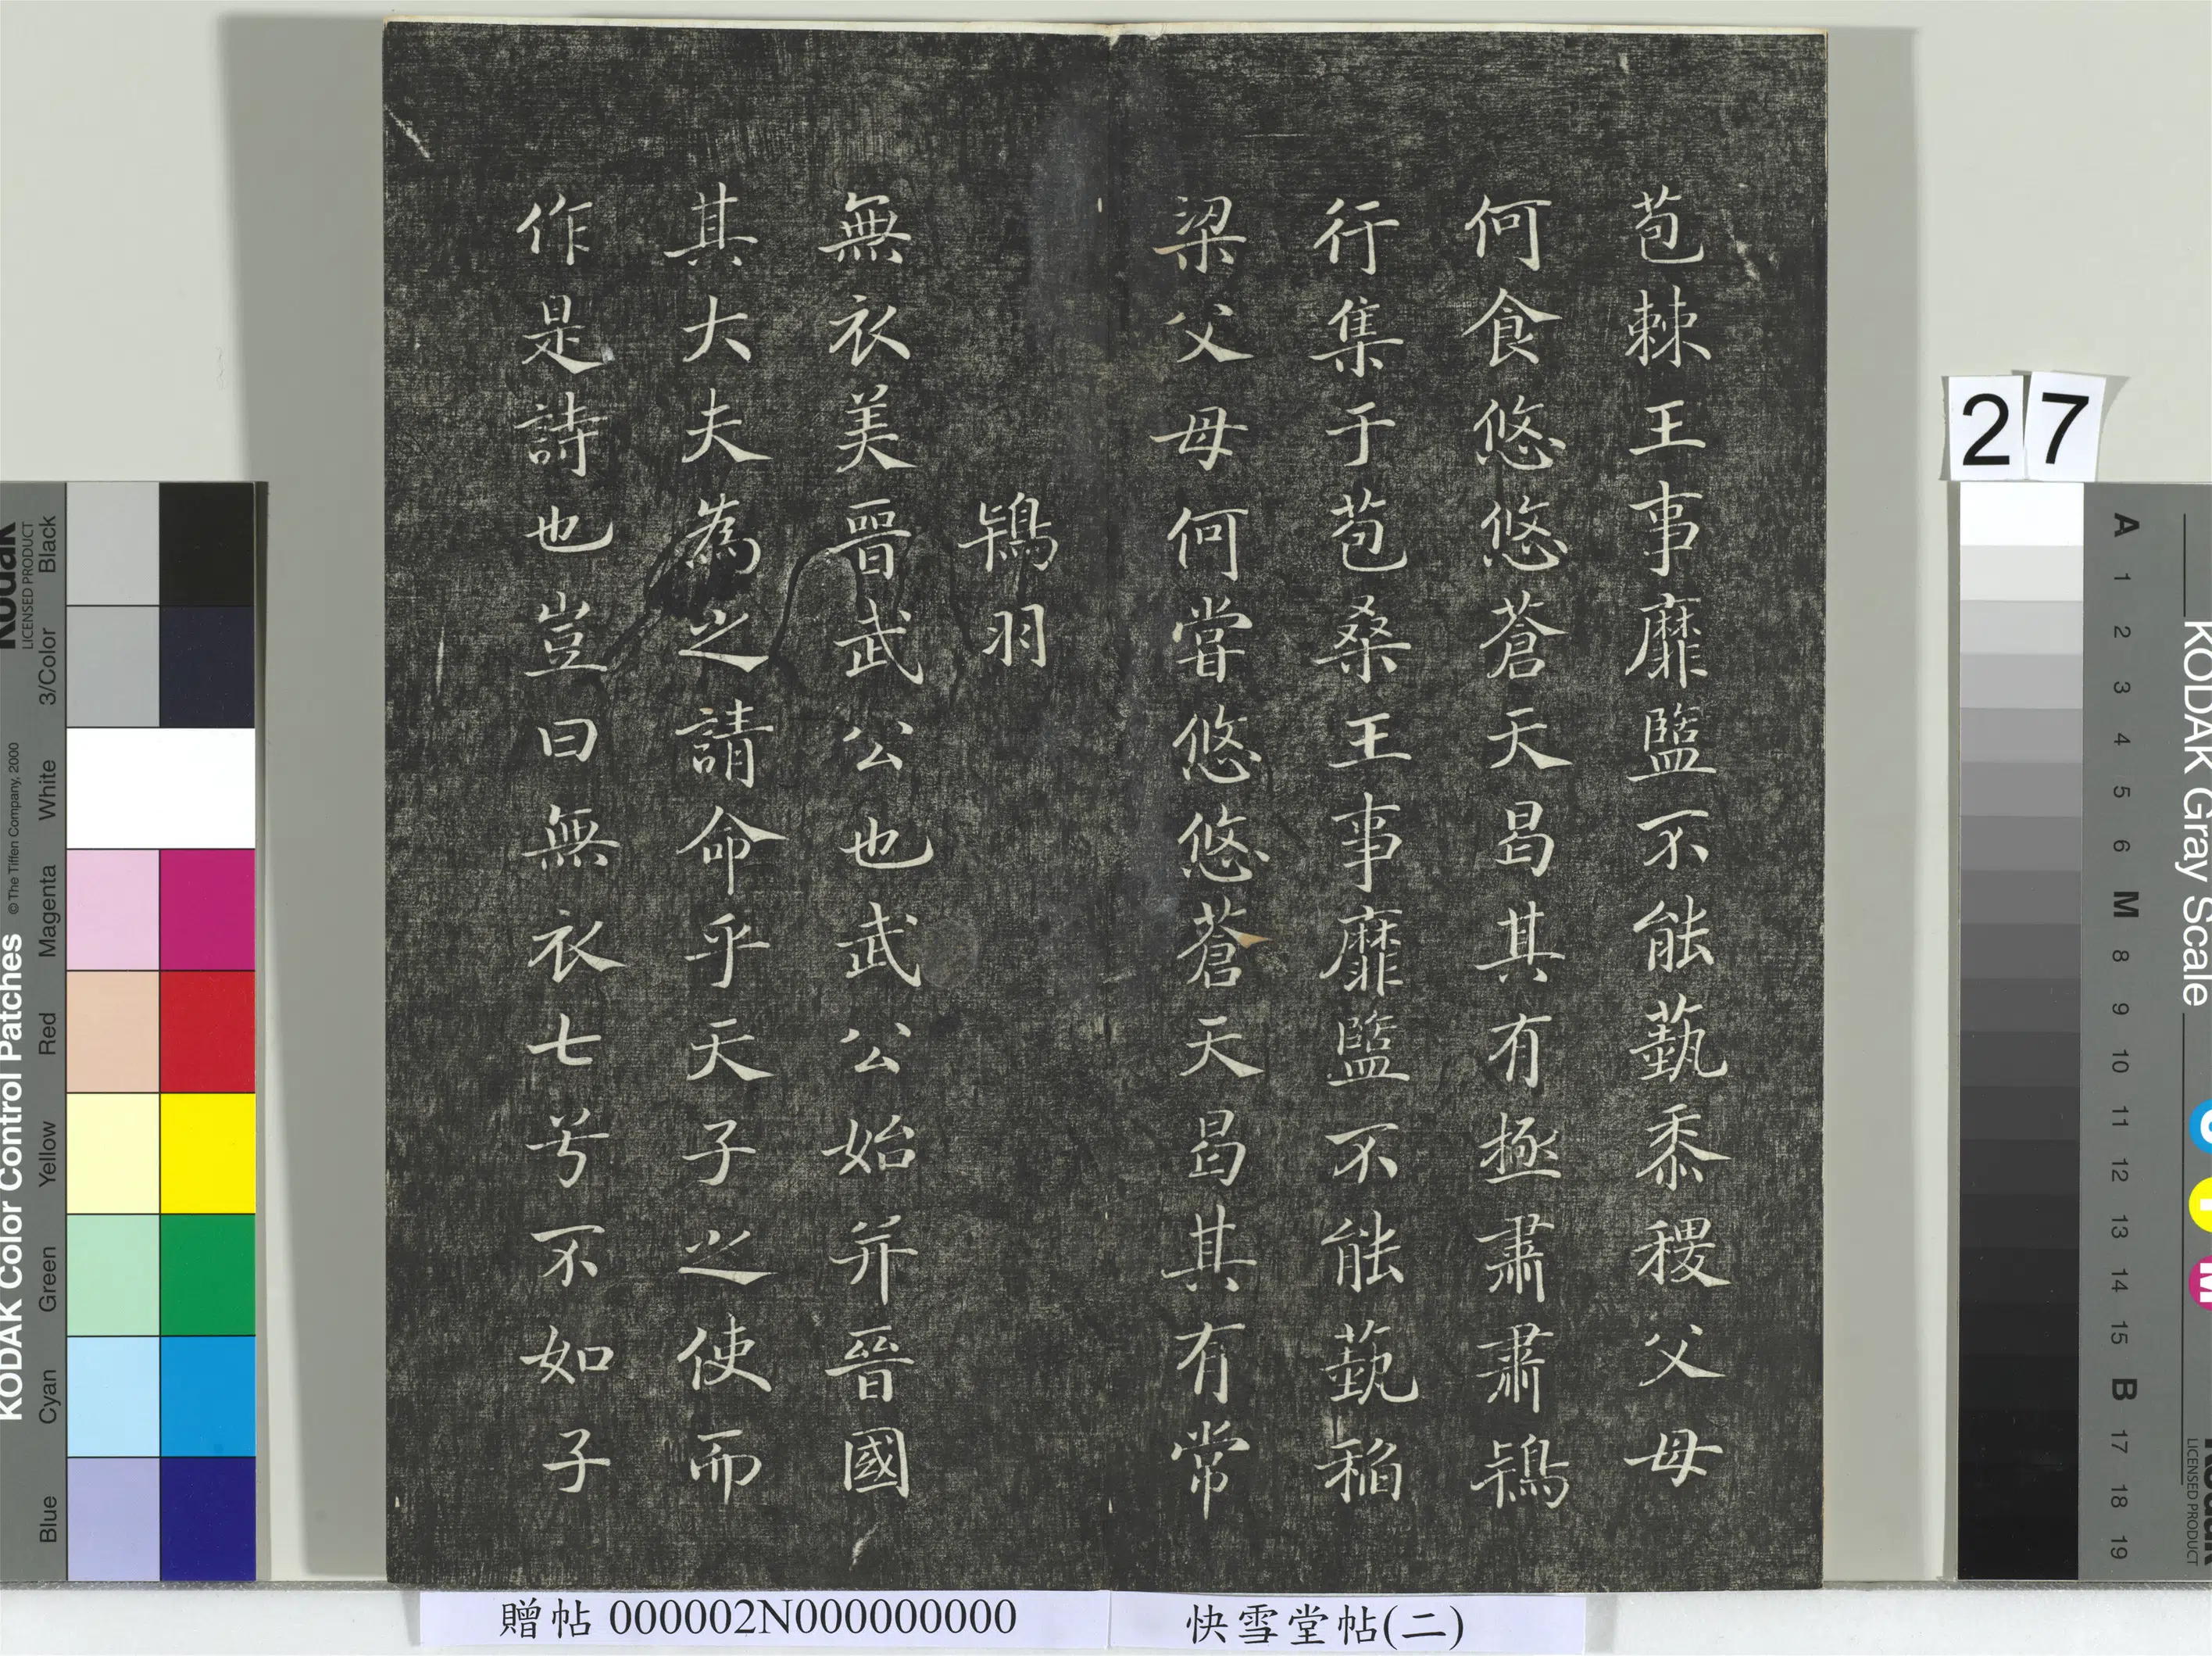 苞棘王事靡盬不能蓺黍稷父母
何食悠悠蒼天曷其有極肅肅鴇
行集于苞桑王事靡盬不能蓺稻
梁父母何甞悠悠蒼天曷其有常
鴇羽
無衣美晉武公也武公始并晉國
其大夫為之請命乎天子之使而
作是詩也豈曰無衣七兮不如子
贈帖 000002N000000000
快雪堂帖(二)
27
KODAK Color Control Patches
©The Tiffen Company, 2000
Kodak
LICENSED PRODUCT
Blue
Cyan
Green
Yellow
Red
Magenta
White
3/Color
Black
KODAK Gray Scale
A 1 2 3 4 5 6 M 8 9 10 11 12 13 14 15 B 17 18 19
C
Y
M
Kodak
LICENSED PRODUCT